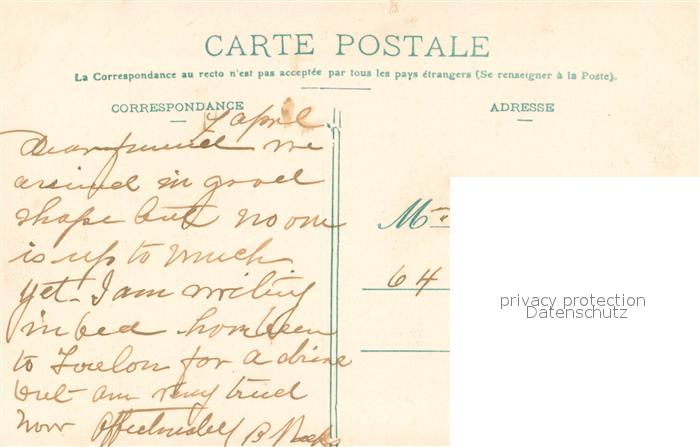 CARTE POSTALE
La Correspondance au recto n'est pas acceptée par tous les pays étrangers (Se renseigner à la Poste).
CORRESPONDANCE
ADRESSE
7 april
Dear friend we
arrived in good
shape but no one
is up to much
yet. I am writing
in bed
to Toulon for a drive
but am very tired
now Affectionately B
M
64
privacy protection
Datenschutz